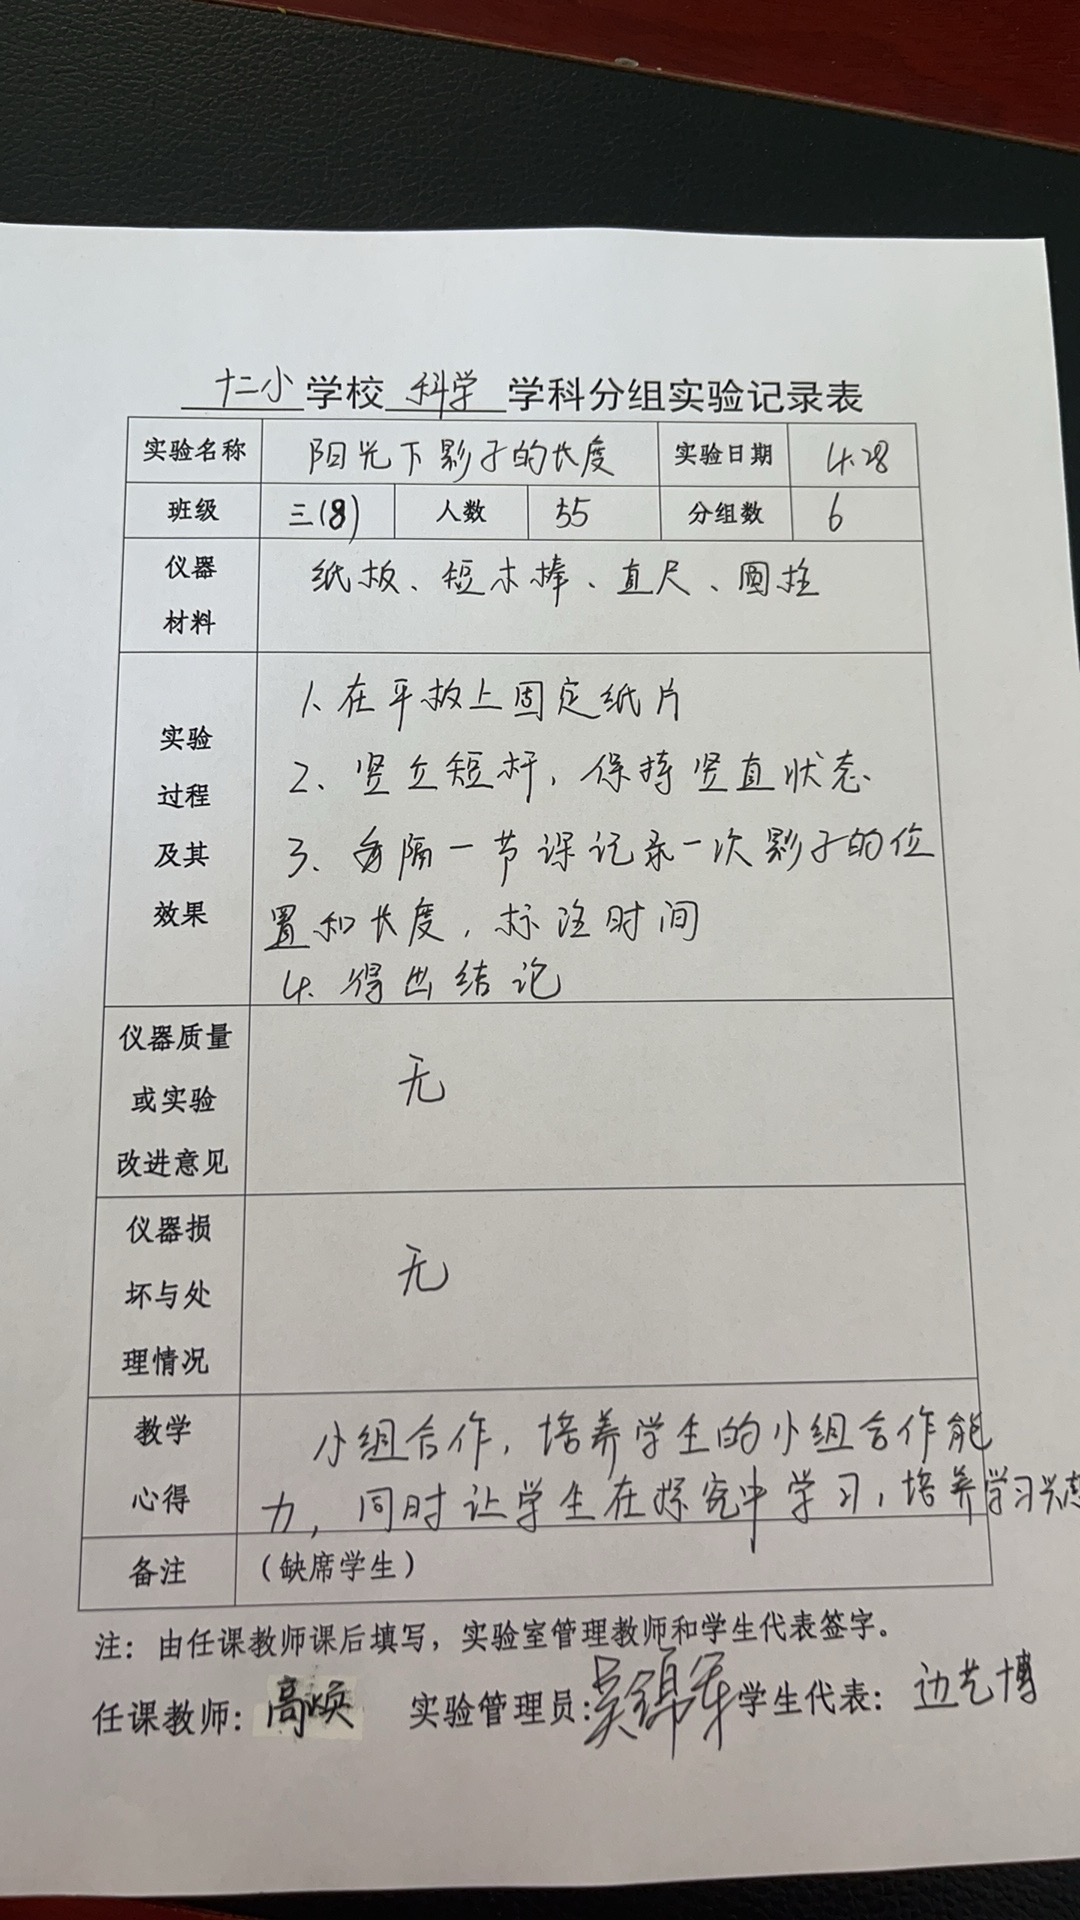 十二小学校科学学科分组实验记录表
实验名称 阳光下影子的长度 实验日期 4.28
班级 三(8) 人数 55 分组数 6
仪器 纸板、短木棒、直尺、圆柱
材料
1、在平板上固定纸片
实验
2、竖立短杆，保持竖直状态
过程
及其 3、每隔一节课记录一次影子的位
效果 置和长度，标注时间
4、得出结论
仪器质量
或实验 无
改进意见
仪器损
坏与处 无
理情况
教学 小组合作，培养学生的小组合作能
心得 力，同时让学生在探究中学习，培养学习兴趣
备注 （缺席学生）
注：由任课教师课后填写，实验室管理教师和学生代表签字。
任课教师：高焕 实验管理员：吴锦军 学生代表：边艺博